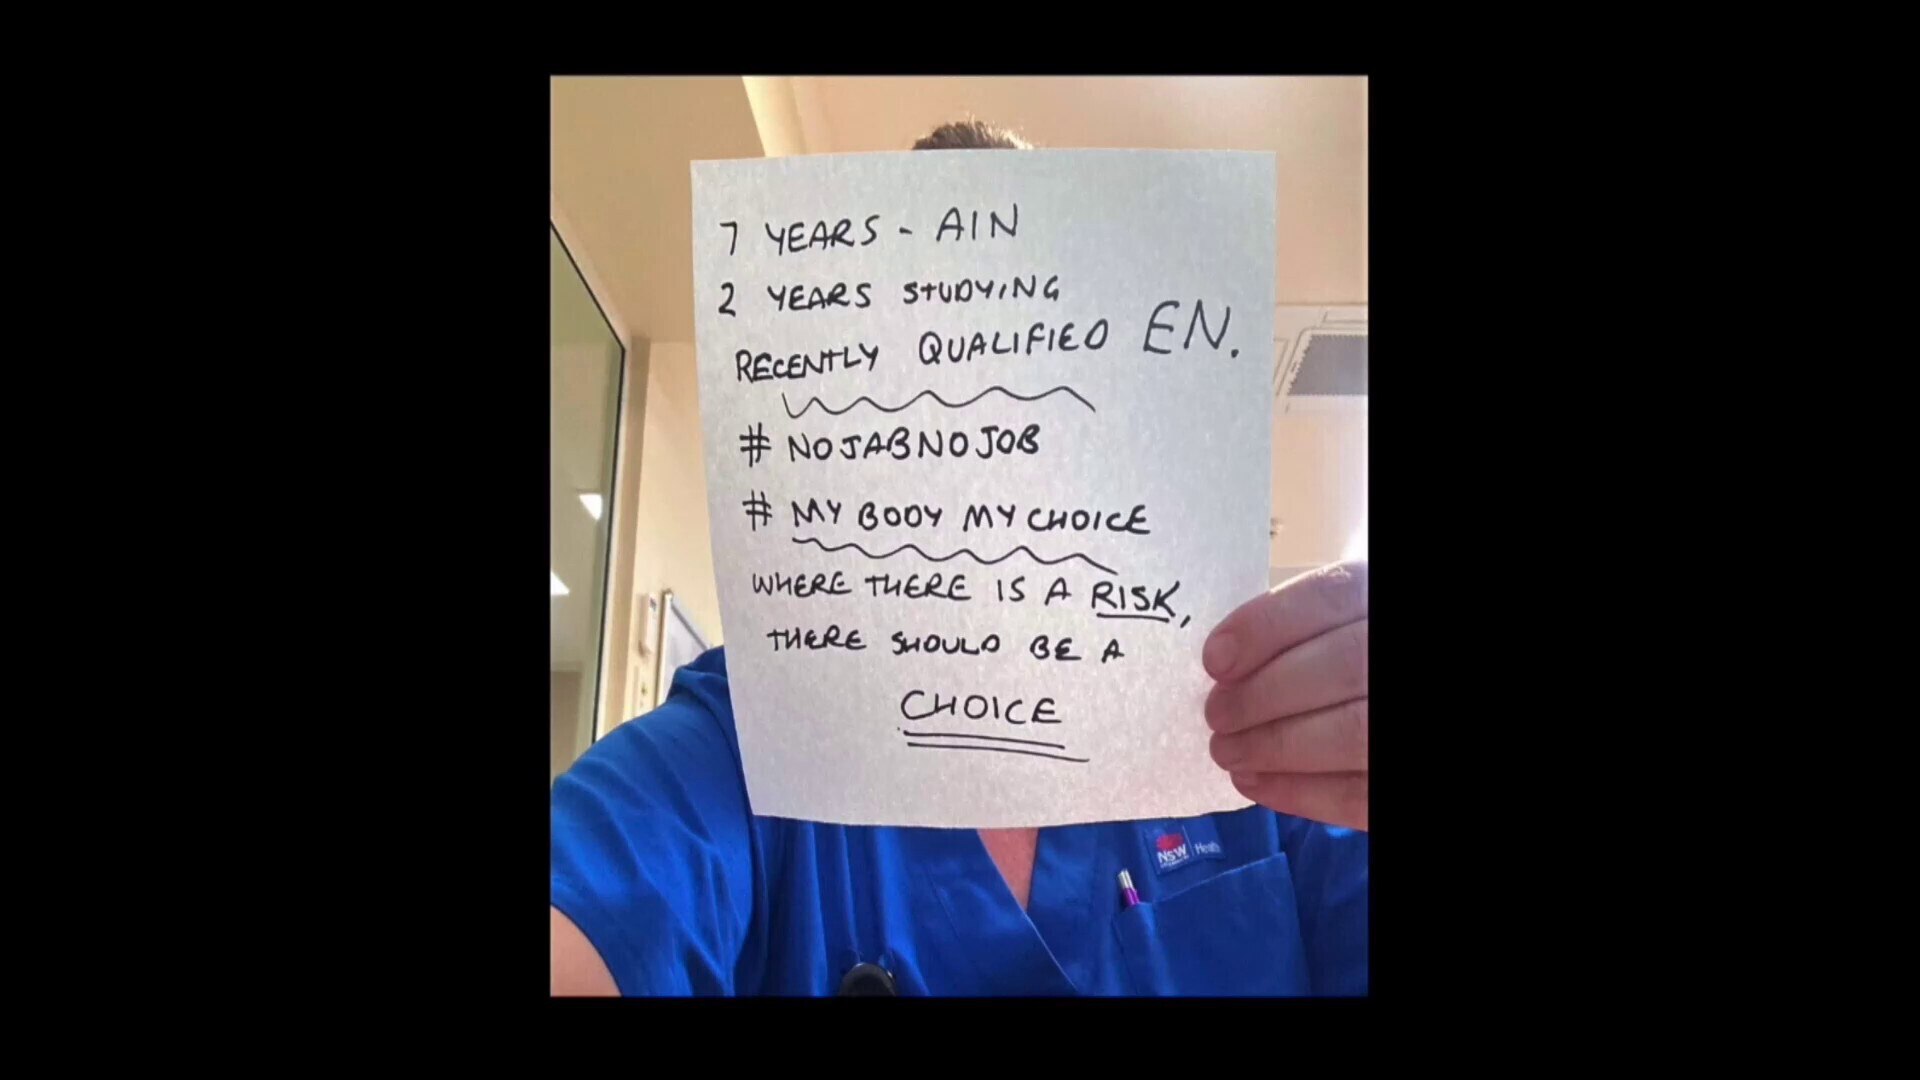 7 YEARS - AIN
2 YEARS STUDYING
RECENTLY QUALIFIED EN.
# NOJABNOJOB
# MY BODY MY CHOICE
WHERE THERE IS A RISK,
THERE SHOULD BE A
CHOICE
NSW Health